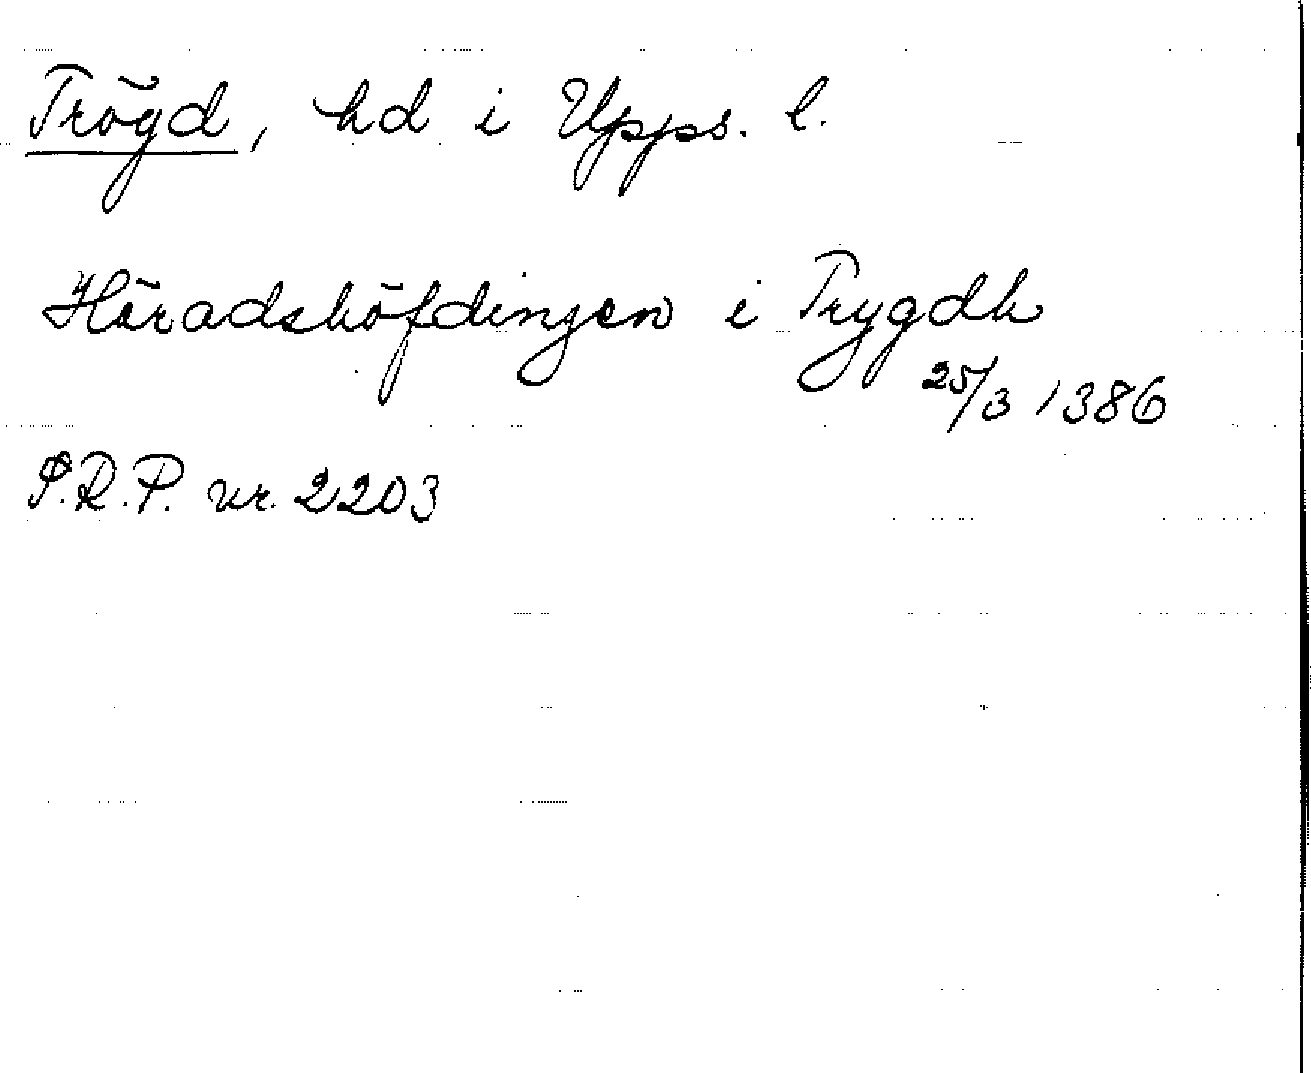 Trögd, hd i Upps. l.
Häradshöfdingen i Trygdh
25/3 1386
S.R.P. nr. 2203